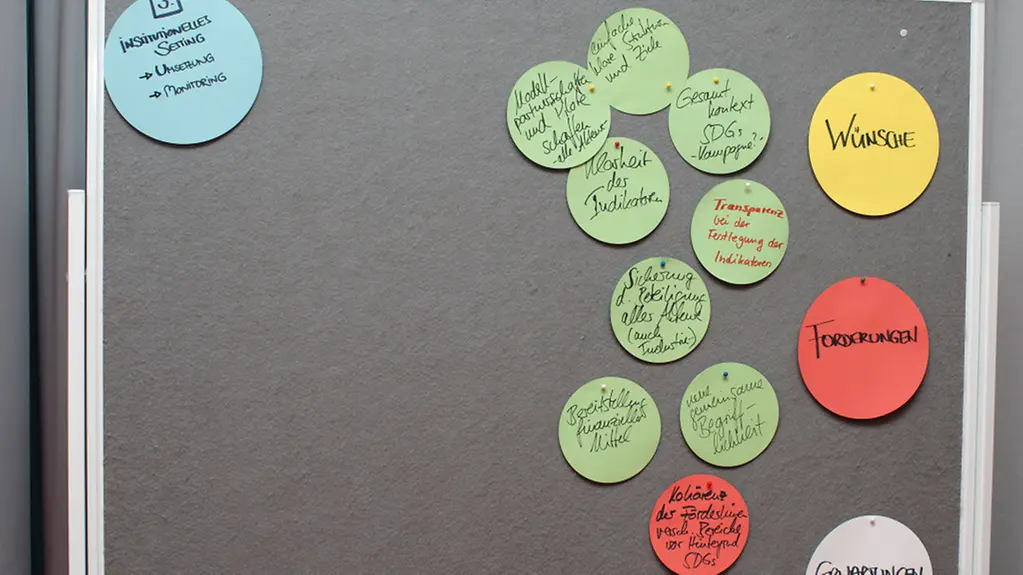 3.
INSTITUTIONELLES
SETTING
→ UMSETZUNG
→ MONITORING
einfache
klare Struktur
und Ziele
Modell-
partnerschaften
und Pfade
schaffen
Gesamt
kontext
SDGs
-Kampagne?-
Klarheit
der
Indikatoren
Transparenz
bei der
Festlegung der
Indikatoren
Sicherung
d. Beteiligung
aller Akteure
(auch
Industrie)
Bereitstellung
finanzieller
Mittel
neue
gemeinsame
Begriff-
lichkeit
Kohärenz
der Förderlinien
versch. Bereiche
vor Hintergrund
SDGs
WÜNSCHE
FORDERUNGEN
ERWARTUNGEN